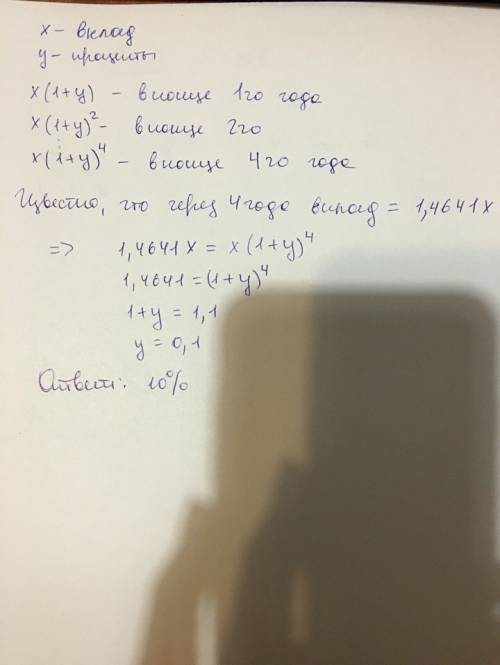 x - вклад
y - проценты
x(1+y) - в конце 1го года
x(1+y)² - в конце 2го
⋮
x(1+y)⁴ - в конце 4го года
Известно, что через 4 года вклад = 1,4641x
=> 1,4641x = x(1+y)⁴
1,4641 = (1+y)⁴
1+y = 1,1
y = 0,1
Ответ: 10%